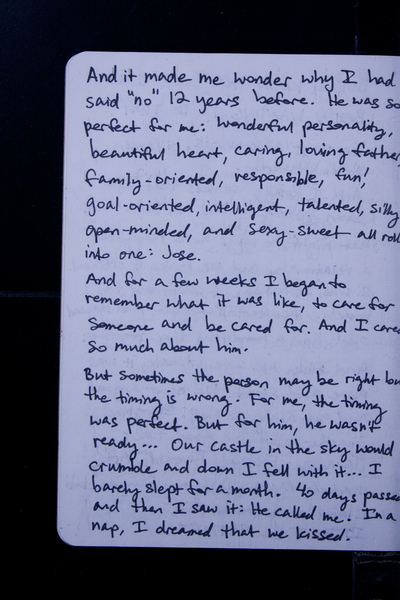 And it made me wonder why I had
said "no" 12 years before. He was so
perfect for me: wonderful personality,
beautiful heart, caring, loving father,
family-oriented, responsible, fun!
goal-oriented, intelligent, talented, silly
open-minded, and sexy-sweet all roll
into one: Jose.
And for a few weeks I began to
remember what it was like, to care for
someone and be cared for. And I care
so much about him.
But sometimes the person may be right bu
the timing is wrong. For me, the timing
was perfect. But for him, he wasn't
ready... Our castle in the sky would
crumble and down I fell with it... I
barely slept for a month. 40 days passe
and then I saw it: He called me. In a
nap, I dreamed that we kissed.